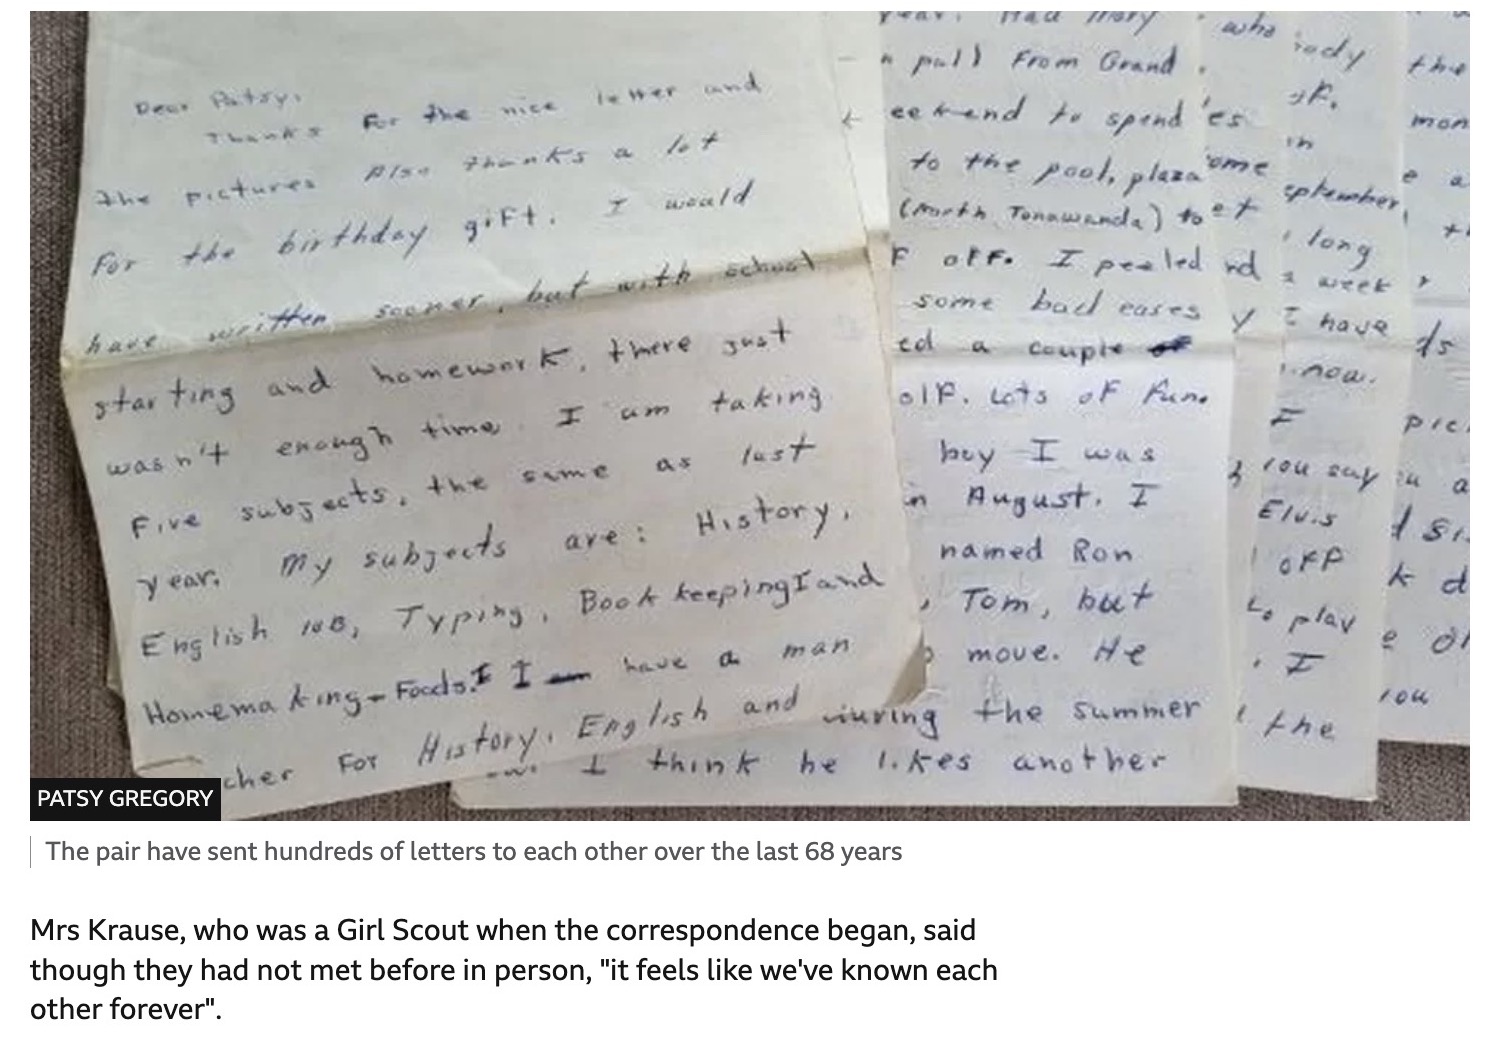 Dear Patsy,
Thanks for the nice letter and
the pictures Also thanks a lot
for the birthday gift. I would
have written sooner, but with school
starting and homework, there just
wasn't enough time. I am taking
five subjects, the same as last
year. My subjects are: History,
English 10B, Typing, Book keeping I and
Homemaking - Foods. I I have a man
cher For History, English and
year. Had Mary
n pall From Grand
eekend to spend
to the pool, plaza
(North Tonawanda) to
F off. I peeled
some bad cases
ed a couple of
olf. Lots of fun.
boy I was
in August. I
named Ron
, Tom, but
move. He
during the summer
I think he likes another
who
es
ome
et
nd
y
ody
in
eptember,
long
a week
I have
now.
I
You say
Elvis
off
to play
. I
the
the
mon
e a
ds
pic
u a
d si
k d
e ol
you
PATSY GREGORY
The pair have sent hundreds of letters to each other over the last 68 years
Mrs Krause, who was a Girl Scout when the correspondence began, said
though they had not met before in person, "it feels like we've known each
other forever".